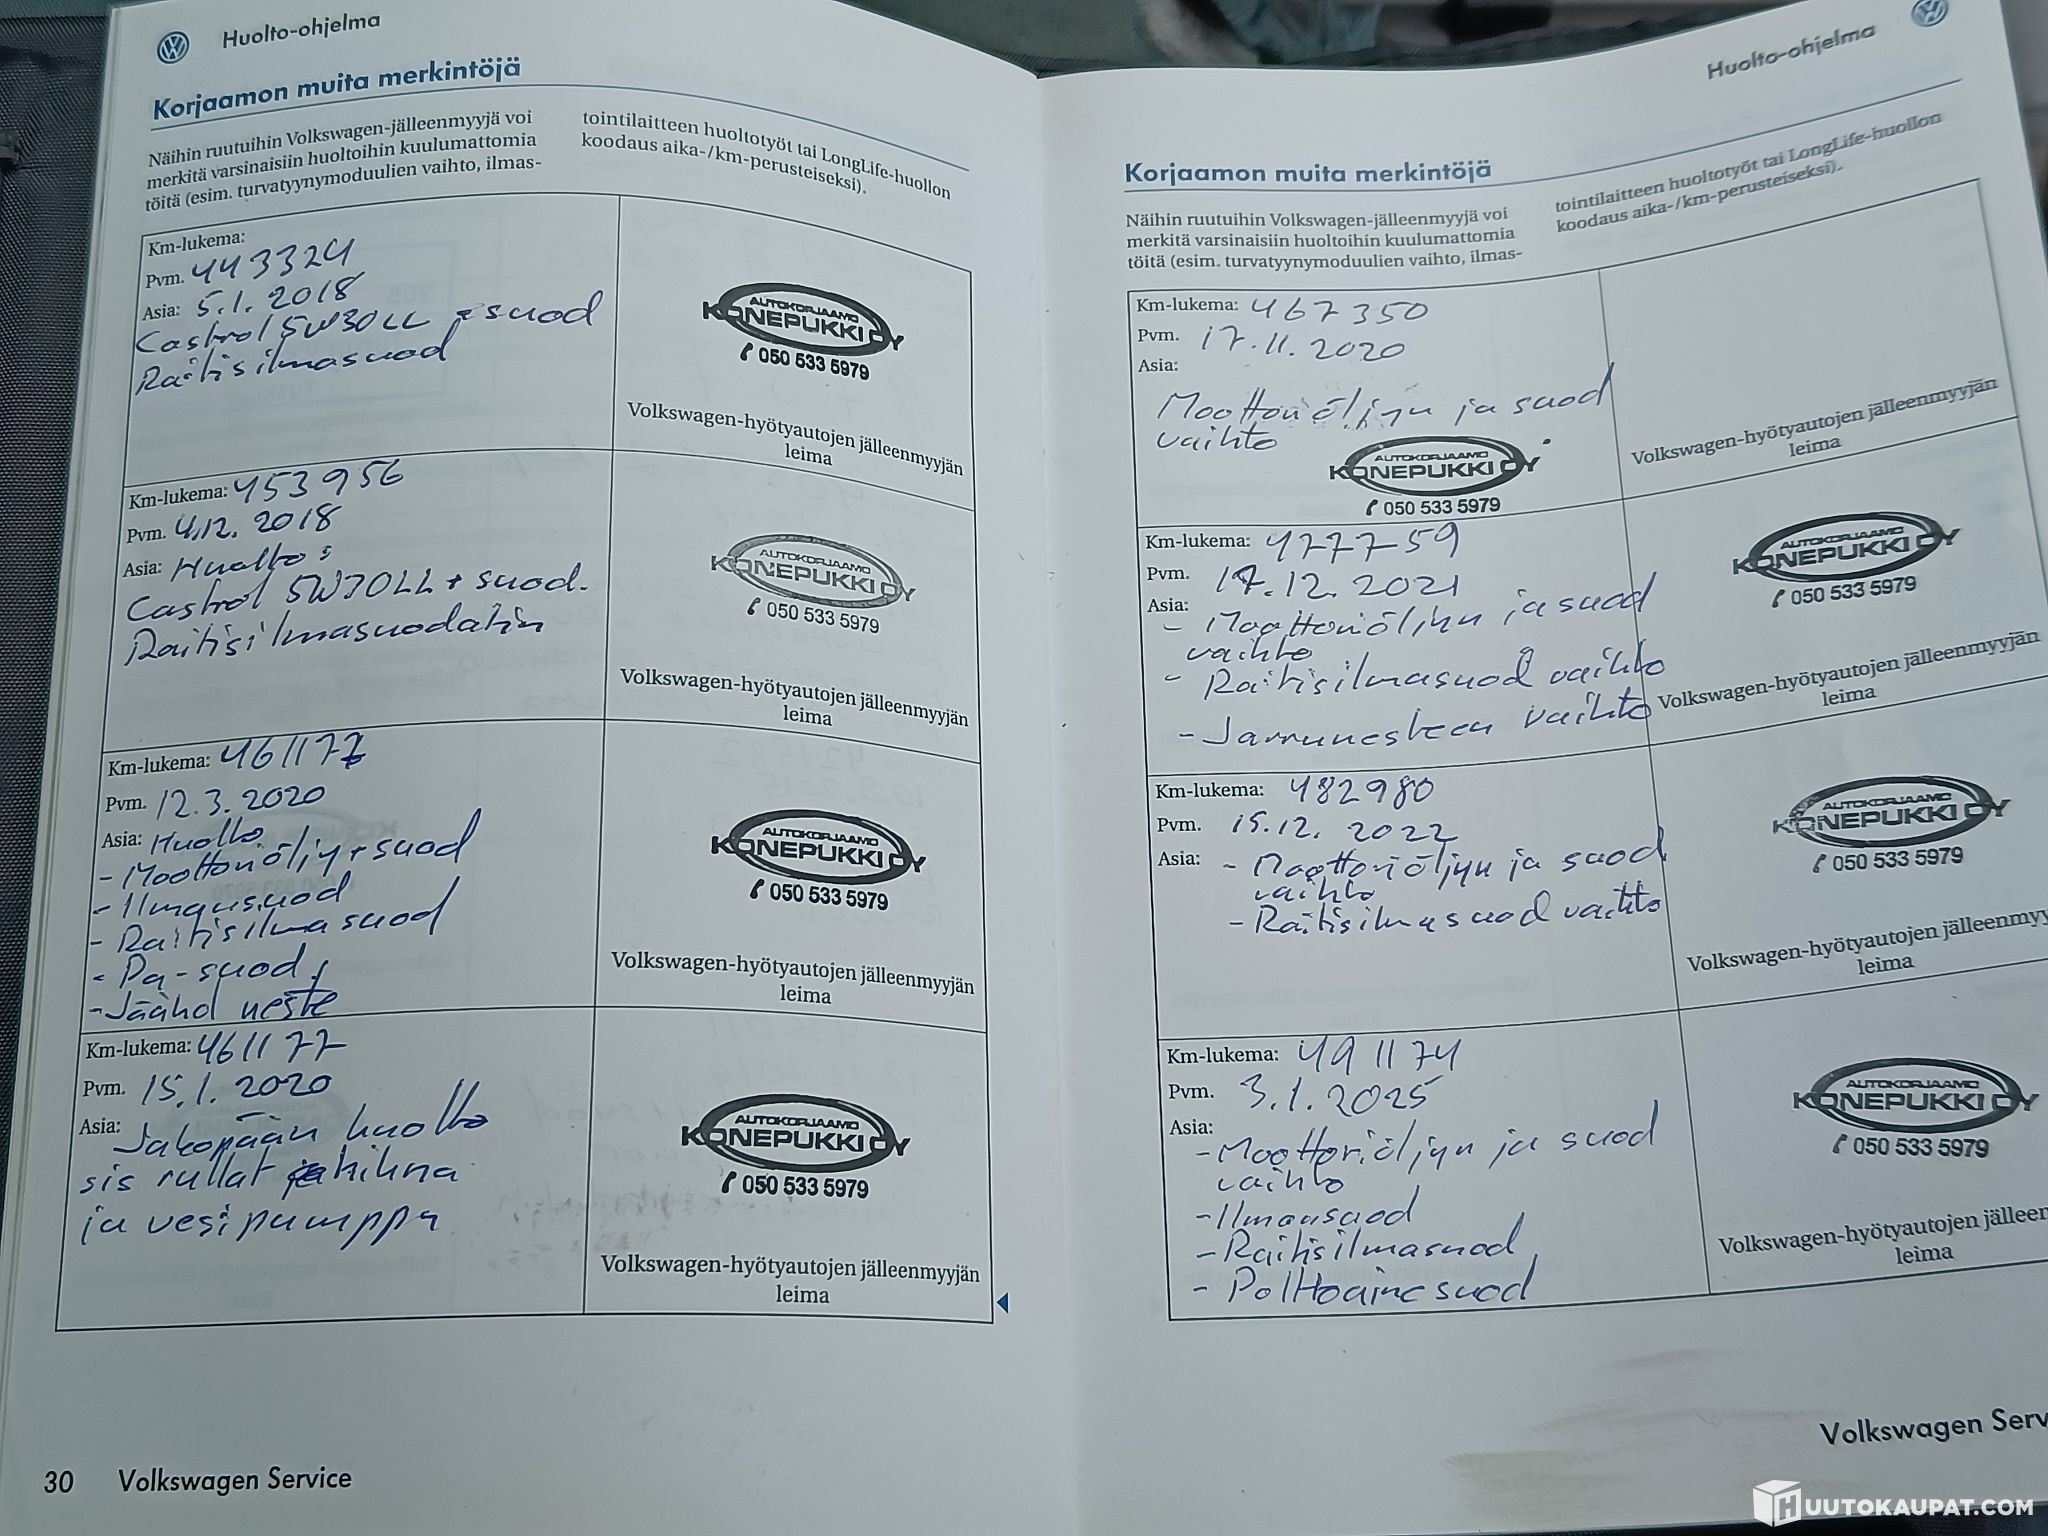 Huolto-ohjelma
Korjaamon muita merkintöjä
Näihin ruutuihin Volkswagen-jälleenmyyjä voi
merkitä varsinaisiin huoltoihin kuulumattomia
töitä (esim. turvatyynymoduulien vaihto, ilmas-
tointilaitteen huoltotyöt tai LongLife-huollon
koodaus aika-/km-perusteiseksi).
Km-lukema: 443324
Pvm. 5.1.2018
Asia:
Castrol 5W30LL + suod
Raitisilmasuod
AUTOKORJAAMO
KONEPUKKI OY
050 533 5979
Volkswagen-hyötyautojen jälleenmyyjän
leima
Km-lukema: 453956
Pvm. 4.12.2018
Asia: Huolto:
Castrol 5W30LL + suod.
Raitisilmasuodatin
AUTOKORJAAMO
KONEPUKKI OY
050 533 5979
Volkswagen-hyötyautojen jälleenmyyjän
leima
Km-lukema: 461177
Pvm. 12.3.2020
Asia: Huolto
- Moottoriöljy + suod
- Ilmansuod
- Raitisilmasuod
- Pa-suod
- Jäähd neste
AUTOKORJAAMO
KONEPUKKI OY
050 533 5979
Volkswagen-hyötyautojen jälleenmyyjän
leima
Km-lukema: 461177
Pvm. 15.1.2020
Asia: Jakopään huolto
sis rullat hihna
ja vesipumppu
AUTOKORJAAMO
KONEPUKKI OY
050 533 5979
Volkswagen-hyötyautojen jälleenmyyjän
leima
30 Volkswagen Service
Huolto-ohjelma
Korjaamon muita merkintöjä
Näihin ruutuihin Volkswagen-jälleenmyyjä voi
merkitä varsinaisiin huoltoihin kuulumattomia
töitä (esim. turvatyynymoduulien vaihto, ilmas-
tointilaitteen huoltotyöt tai LongLife-huollon
koodaus aika-/km-perusteiseksi).
Km-lukema: 467350
Pvm. 17.11.2020
Asia:
Moottoriöljyn ja suod
vaihto
AUTOKORJAAMO
KONEPUKKI OY
050 533 5979
Volkswagen-hyötyautojen jälleenmyyjän
leima
Km-lukema: 477759
Pvm. 17.12.2021
Asia:
- Moottoriöljyn ja suod
vaihto
- Raitisilmasuod vaihto
- Jarrunesteen vaihto
AUTOKORJAAMO
KONEPUKKI OY
050 533 5979
Volkswagen-hyötyautojen jälleenmyyjän
leima
Km-lukema: 482980
Pvm. 15.12.2022
Asia: - Moottoriöljyn ja suod
vaihto
- Raitisilmasuod vaihto
AUTOKORJAAMO
KONEPUKKI OY
050 533 5979
Volkswagen-hyötyautojen jälleenmyy
leima
Km-lukema: 491174
Pvm. 3.1.2025
Asia:
- Moottoriöljyn ja suod
vaihto
- Ilmansuod
- Raitisilmasuod
- Polttoainesuod
AUTOKORJAAMO
KONEPUKKI OY
050 533 5979
Volkswagen-hyötyautojen jälleen
leima
Volkswagen Serv
HUUTOKAUPAT.COM